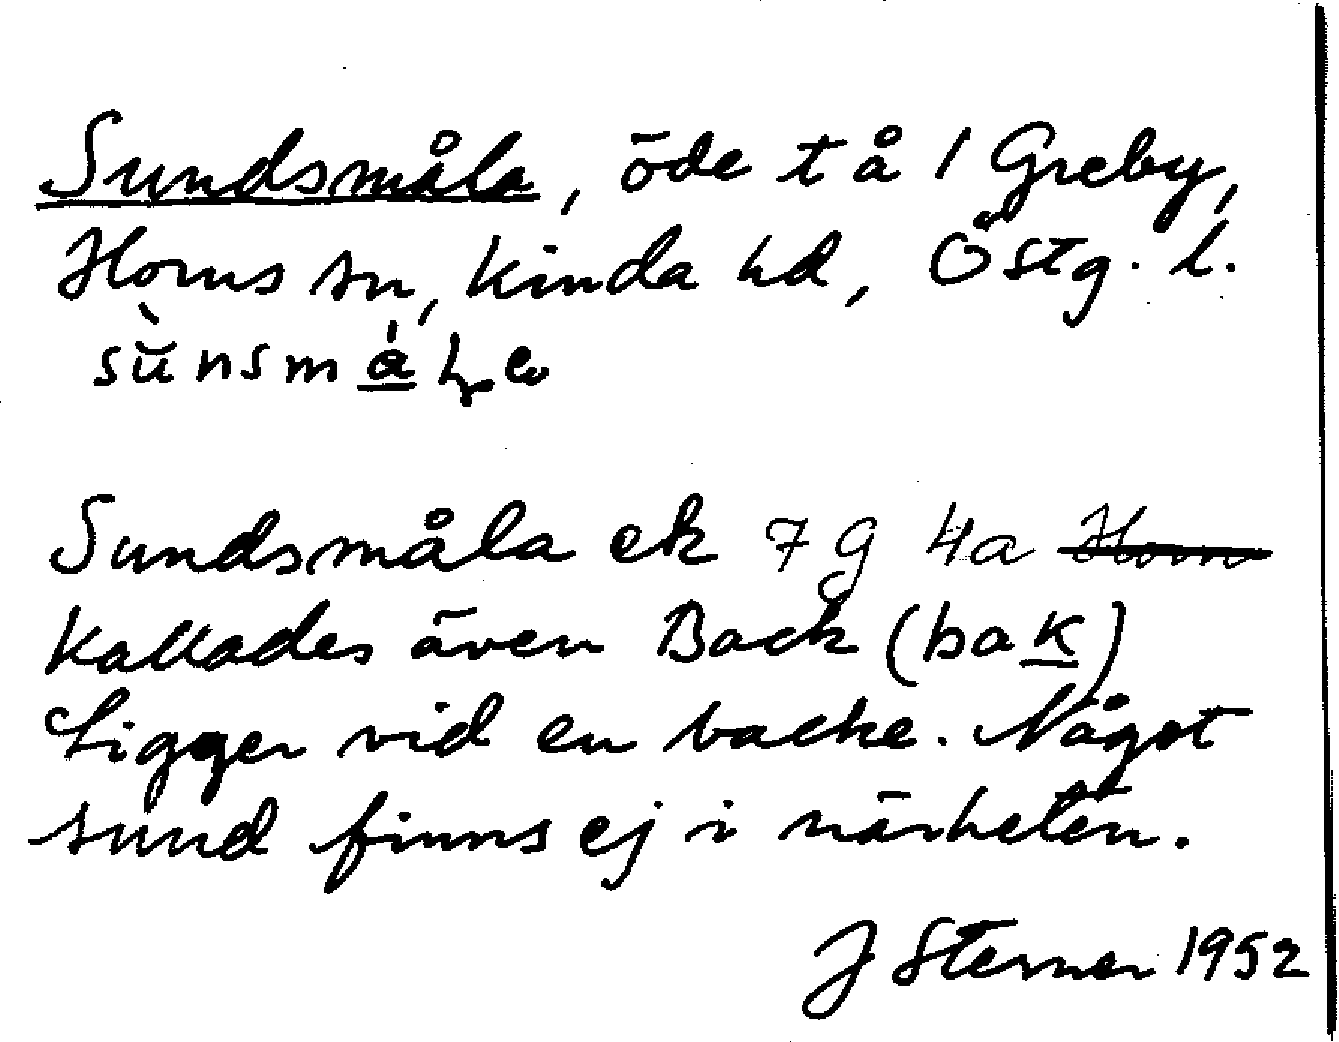 Sundsmåla, öde t å 1 Greby,
Horns sn, Kinda hd, Östg. l.
Sundsmåla ek 7g 4a Horn
kallades även Back (bak)
Ligger vid en backe. Något
sund finns ej i närheten.
J Sterner 1952